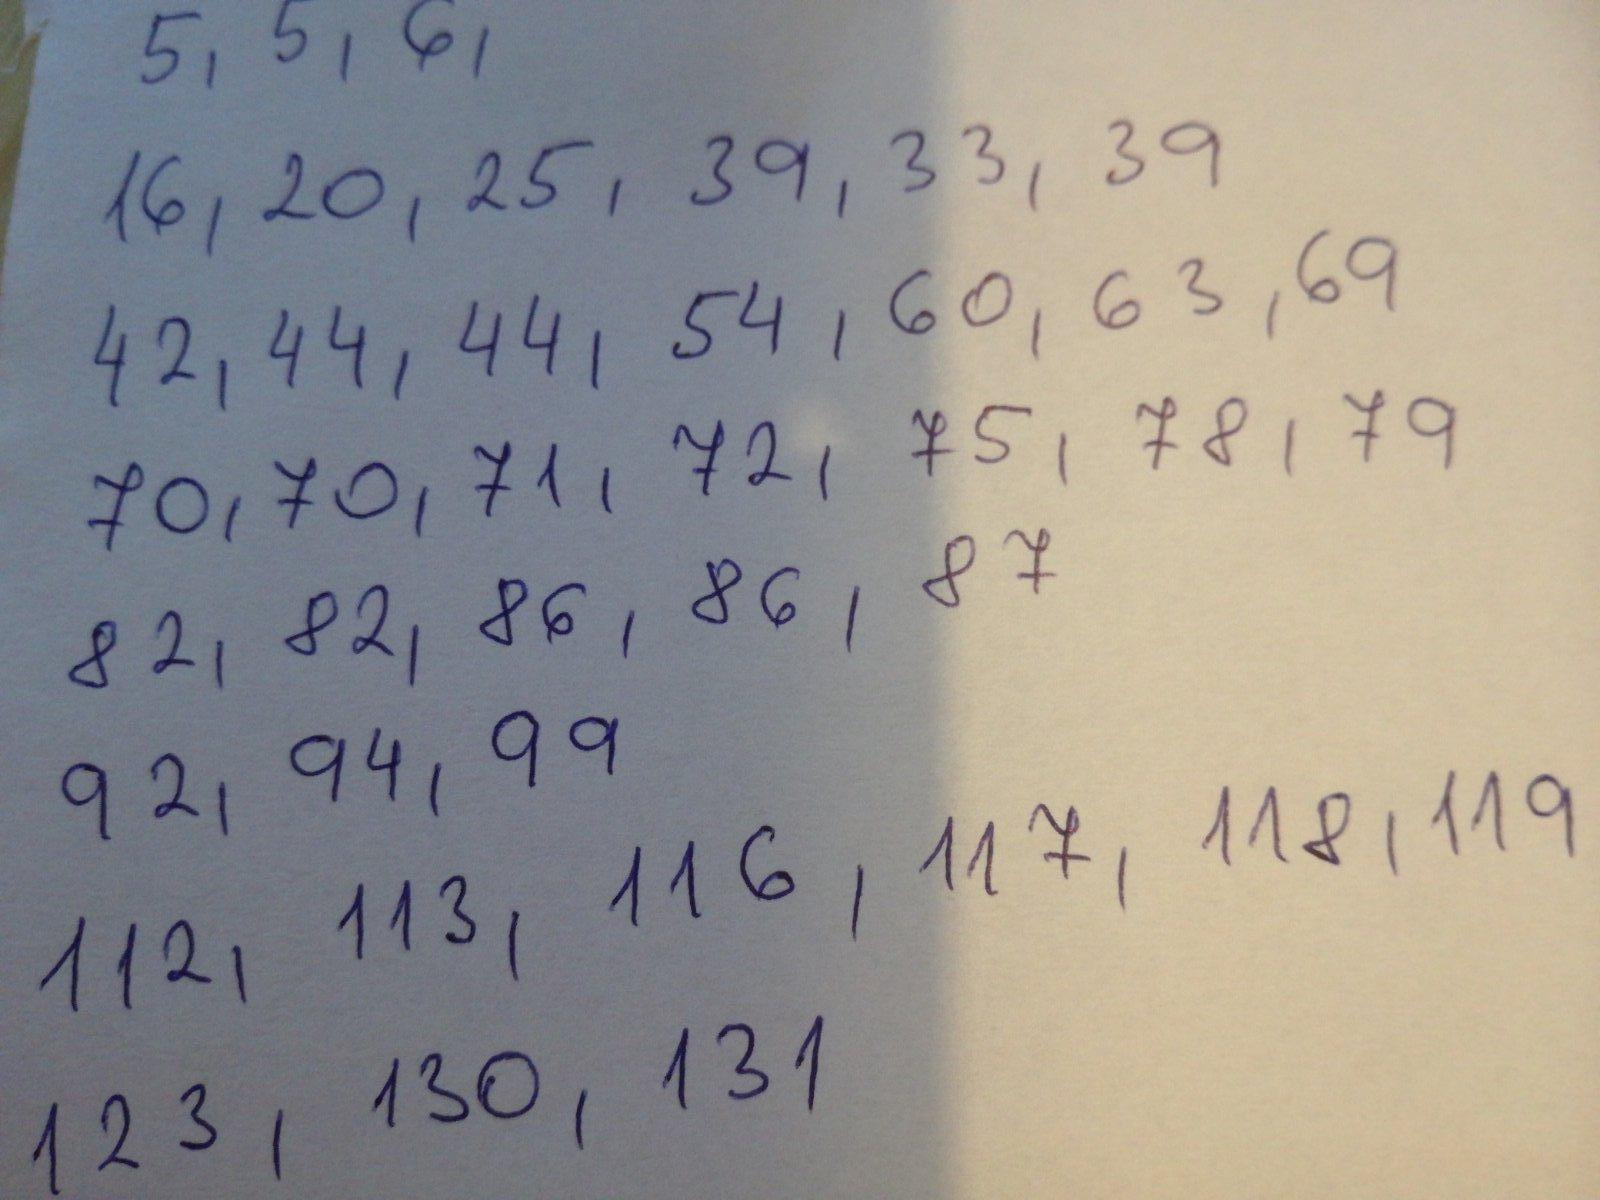 5, 5, 6,
16, 20, 25, 39, 33, 39
42, 44, 44, 54, 60, 63, 69
70, 70, 71, 72, 75, 78, 79
82, 82, 86, 86, 87
92, 94, 99
112, 113, 116, 117, 118, 119
123, 130, 131